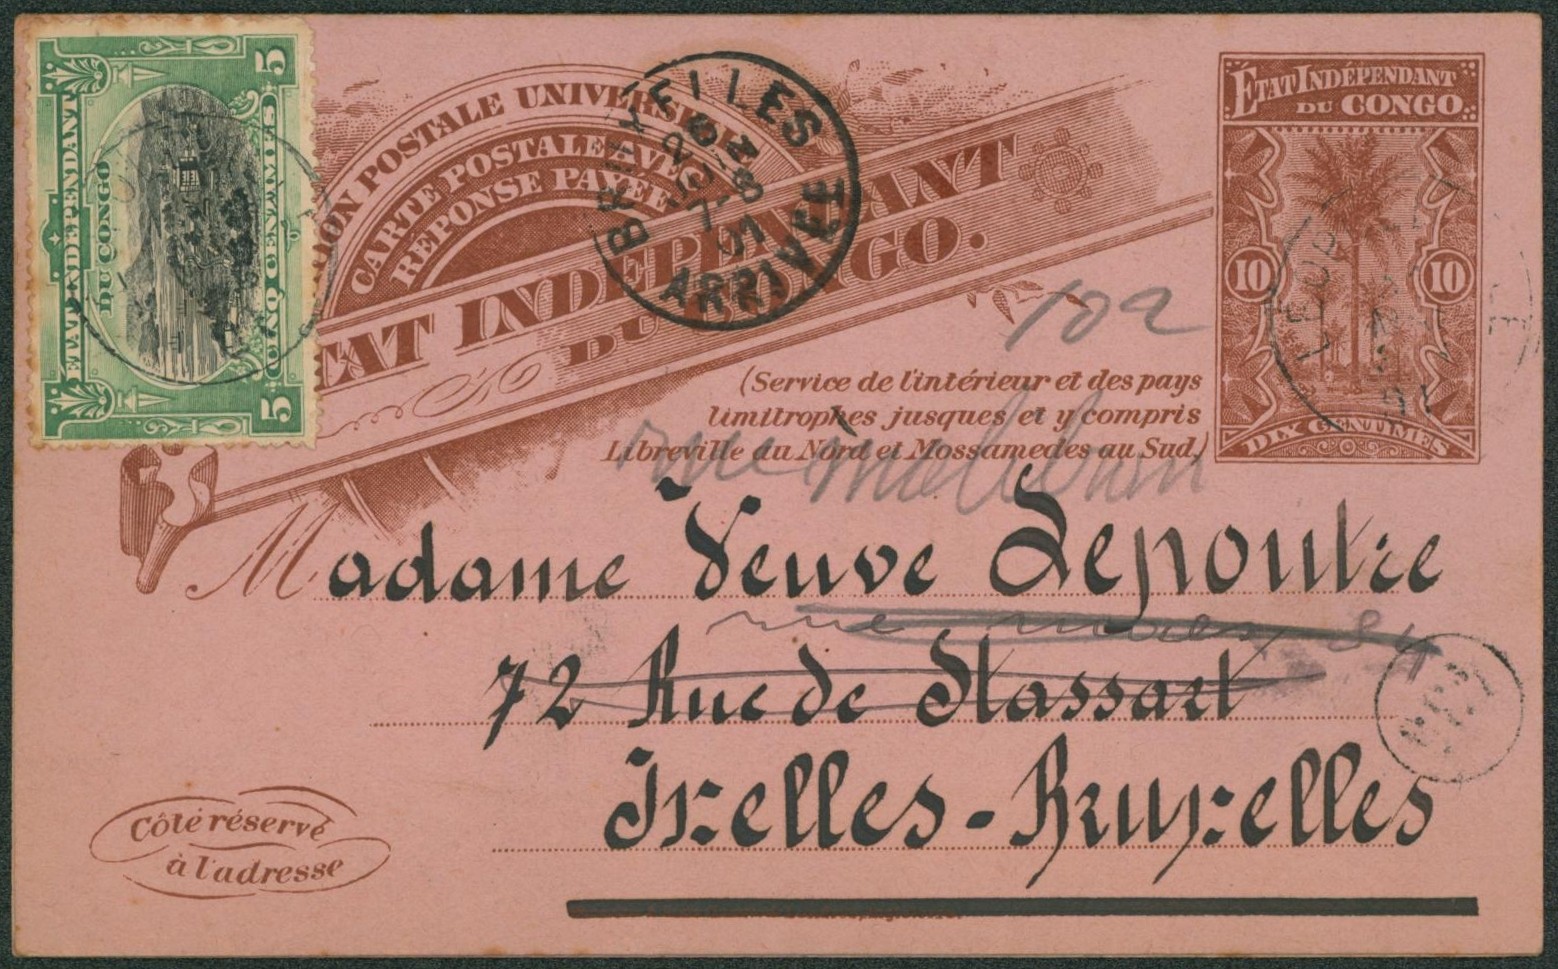 ETAT INDÉPENDANT
DU CONGO
CINQ CENTIMES
5
5
UNION POSTALE UNIVERSELLE
CARTE POSTALE AVEC
REPONSE PAYÉE
ETAT INDÉPENDANT
DU CONGO.
BRUXELLES
26
JUIN
7-8
07
ARRIVÉE
ÉTAT INDÉPENDANT
DU CONGO.
10
10
DIX CENTIMES
LEOP
109
(Service de l'intérieur et des pays
limitrophes jusques et y compris
Libreville au Nord et Mossamedes au Sud.)
rue Malibran
Madame Veuve Lepoutre
rue 84
72 Rue de Stassart
Ixelles-Bruxelles
Côté réservé
à l'adresse